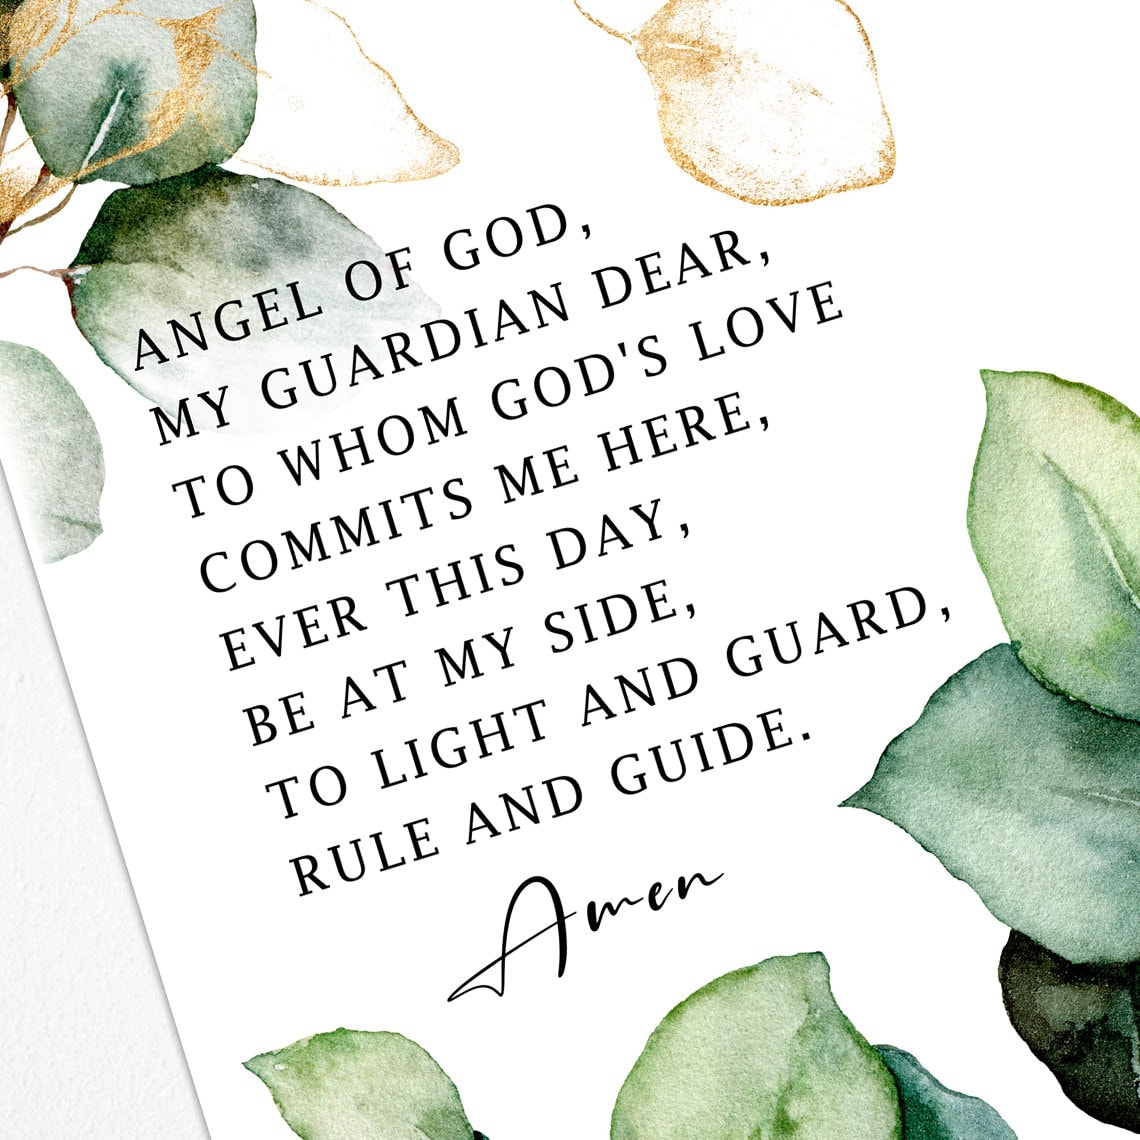 ANGEL OF GOD,
MY GUARDIAN DEAR,
TO WHOM GOD'S LOVE
COMMITS ME HERE,
EVER THIS DAY,
BE AT MY SIDE,
TO LIGHT AND GUARD,
RULE AND GUIDE.
Amen